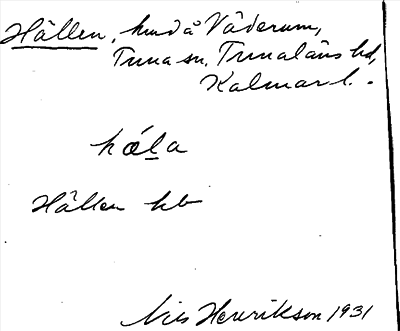 Hållen, hmd å Väderum,
Tuna sn, Tunaläns hd,
Kalmar l.
hǽla
Hållen kb
Nils Henrikson 1931